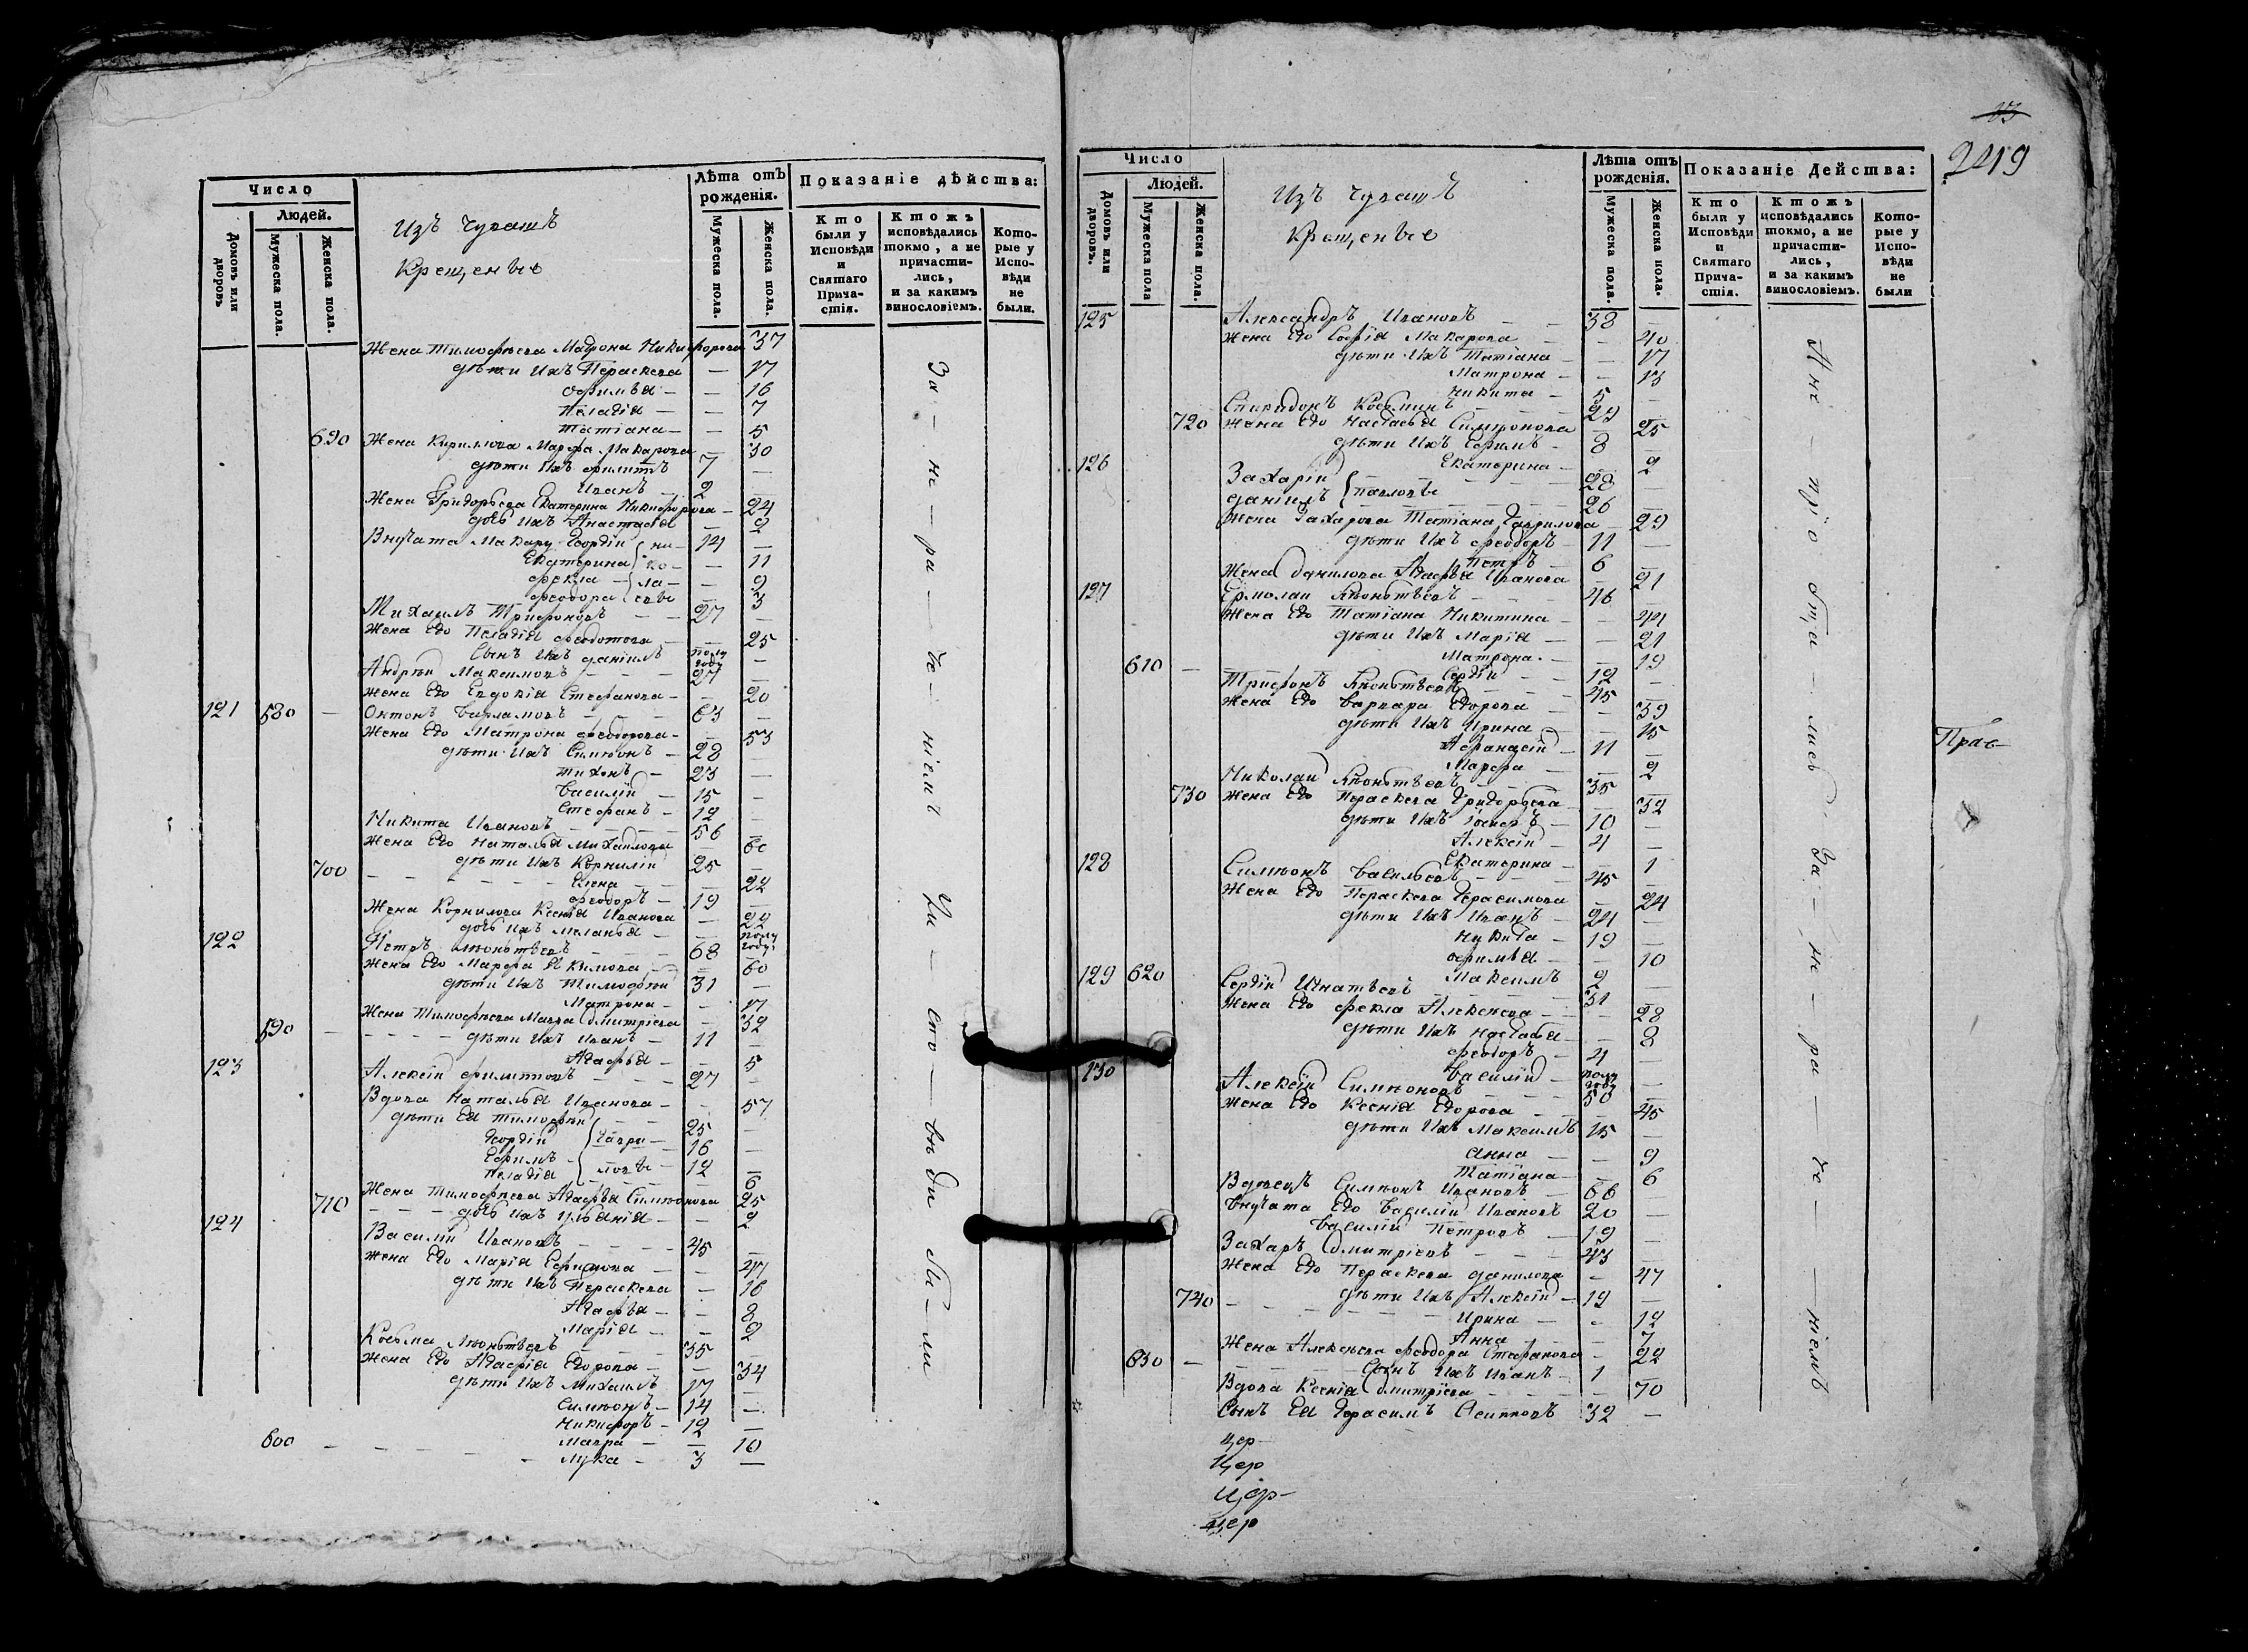 Число
Людей.
Домовъ или дворовъ
Мужеска пола.
Женска пола.
Изъ Чувашъ
Крещеныѣ
Лѣта отъ рожденія.
Мужеска пола.
Женска пола.
Показаніе дѣйства:
Кто были у Исповѣди и Святаго Прича-стія.
Ктожъ исповѣдались токмо, а не причасти-лись, и за какимъ винословіемъ.
Кото-рые у Испо-вѣди не были.
Жена Тимофѣева Матрона Никифорова 37
дѣти ихъ Пераскева — 17
Офимья — — 16
Пелагія — — 7
Татіана — — 5
690 Жена Кирилова Марфа Макарова — 30
дѣти ихъ Филипъ 7 —
Иванъ — 2 —
Жена Григорьева Екатерина Никифорова — 24
дочь ихъ Анастасья — 2
Внучата Макару Георгіи 14 —
Екатерина — 11
Фекла — 9
Феодора — 3
Нико-ла-евы
Михаилъ Трифоновъ — — 27 —
Жена Его Пелагія Федотова — — 25
Сынъ ихъ Даніилъ полу году —
Андрѣй Максимовъ — — — 27 —
Жена Его Евдокія Стефанова — — 20
121 580 — Октонъ Варламовъ — — — 63 —
Жена Его Матрона Феодорова — — 53
дѣти ихъ Симіонъ — 28 —
Тихонъ — 23 —
Василій — 15 —
Стефанъ — 12 —
Никита Ивановъ — — — 56 —
Жена Его Наталья Михаилова — 60
700 дѣти ихъ Корнилій 25 —
Елена — — 22
Феодоръ — 19 —
Жена Корнилова Ксенія Иванова — 22
дочь ихъ Меланья — — полу году
122 Петръ Леонтьевъ — — — 68 —
Жена Его Марфа Якимова — — 60
дѣти ихъ Тимофѣй 31 —
Матрона — — 17
Жена Тимофѣева Мавра Дмитріева — 32
590 — — — — дѣти ихъ Иванъ — 11 —
Агафья — — 5
123 Алексѣй Филиповъ — — — 27 —
Вдова Наталья Иванова — — 57
дѣти Ея Тимофѣй — — 25 —
Георгій 16 —
Ефимъ — 12 —
Пелагія — 6
Гаври-ловы
Жена Тимофѣева Агафья Симионова 25
710 — — — дочь ихъ Ульянія — — 2
124 Василій Ивановъ — — — 45 —
Жена Его Марія Ефимова — — 47
дѣти ихъ Пераскева — 16
Агафья — — 8
Марія — — 2
Косьма Леонтьевъ — — 35 —
Жена Его Агафія Егорова — — 34
дѣти ихъ Михаилъ 17 —
Симіонъ — 14 —
Никифоръ — 12 —
Мавра — — 10
600 — — — — — Лука — 3 —
За — не — ра — че — ніемъ
Не — спо — вѣ ды ва — ли
2419
Число
Людей.
Домовъ или дворовъ.
Мужеска пола
Женска пола.
Изъ Чувашъ
Крещеныѣ
Лѣта отъ рожденія.
Мужеска пола.
Женска пола.
Показаніе Действа:
Кто были у Исповѣди и Святаго Прича-стія.
Ктожъ исповѣдались токмо, а не причасти-лись, и за какимъ винословіемъ.
Кото-рые у Испо-вѣди не были
125 Александръ Ивановъ — — 38 —
Жена Его Софія Макарова — — 40
дѣти ихъ Татіана — — 17
Матрона — — 13
Никита — 5 —
Спиридонъ Косминъ — — — 29 —
720 Жена Его Настасья Симионова — 25
дѣти ихъ Ефимъ — 8 —
Екатерина — — 2
126 Захарій — — — 28 —
Даніилъ — — — 26 —
Павловы
Жена Захарова Татіана Гаврилова — 29
дѣти ихъ Феодоръ — 11 —
Петръ — 6 —
Жена Данилова Агафья Иванова — 21
127 Ермолай Леонтьевъ — — — 46 —
Жена Его Татіана Никитина — — 44
дѣти ихъ Марія — — 21
Матрона — — 19
610 — Сергій — — 12 —
Трифонъ Леонтьевъ — — 45 —
Жена Его Варвара Егорова — — 39
дѣти ихъ Ирина — — 15
Афанасій — 11 —
Марфа — — 2
Николай Леонтьевъ — — 35 —
730 Жена Его Пераскева Григорьева — — 32
дѣти ихъ Іосифъ — 10 —
Алексѣй — 4 —
Екатерина — — 1
128 Симіонъ Васильевъ — — — 45 —
Жена Его Пераскева Герасимова — 24
дѣти ихъ Иванъ — 24 —
Никита — 19 —
Офимья — — 10
620 Максимъ 2 —
129 Сергій Игнатьевъ — — — 31 —
Жена Его Фекла Алексѣева — — 28
дѣти ихъ Настасья — — 8
Феодоръ — 4 —
Василій — полу году —
130 Алексѣй Симионовъ — — 50 —
Жена Его Ксенія Егорова — — 45
дѣти ихъ Максимъ 15 —
Анна — — 9
Татіана — — 6
Вдовецъ Симіонъ Ивановъ — 66 —
Внучата Его Василій Ивановъ 20 —
Василій Петровъ — 19 —
Захаръ Дмитріевъ — — — 43 —
Жена Его Пераскева Данилова — 47
740 — — дѣти ихъ Алексѣй — 19 —
Ирина — — 12
Анна — — 7
Жена Алексѣева Феодора Стефанова — 22
630 — — — Сынъ ихъ Иванъ — 1 —
Вдова Ксенія Дмитріева — — — 70
Сынъ Ея Герасимъ Осиповъ 32 —
За — не — ра — че — — ніемъ
Прав—